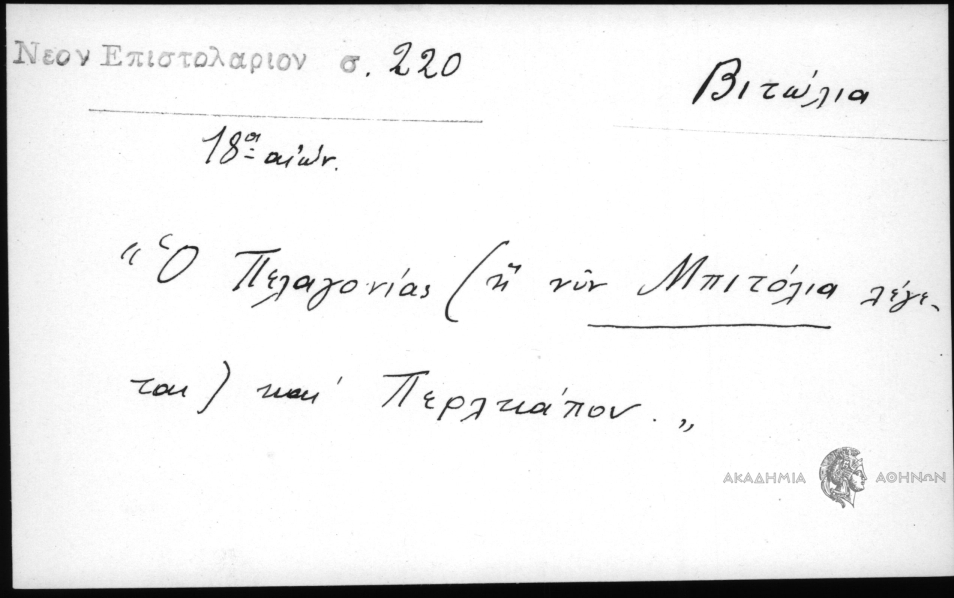 Νεον Επιστολαριον σ. 220
Βιτώλια
18ος αἰών.
“Ὁ Πελαγονίας (ἥ νῦν Μπιτόλια λέγε-
ται) καί Περλκάπου.„
ΑΚΑΔΗΜΙΑ ΑΘΗΝΩΝ